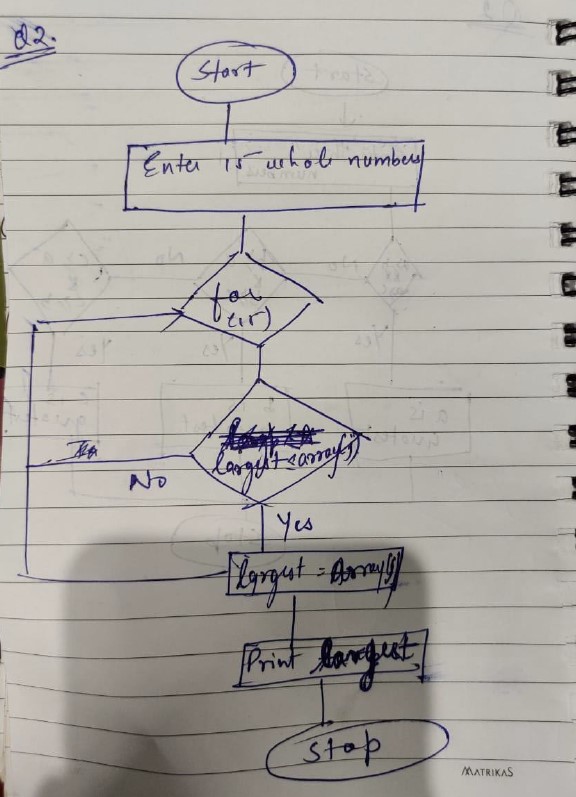 Q2.
Start
Enter 15 whole numbers
for
(15)
largest<array[]
No
Yes
largest = Array[]
Print largest
Stop
MATRIKAS